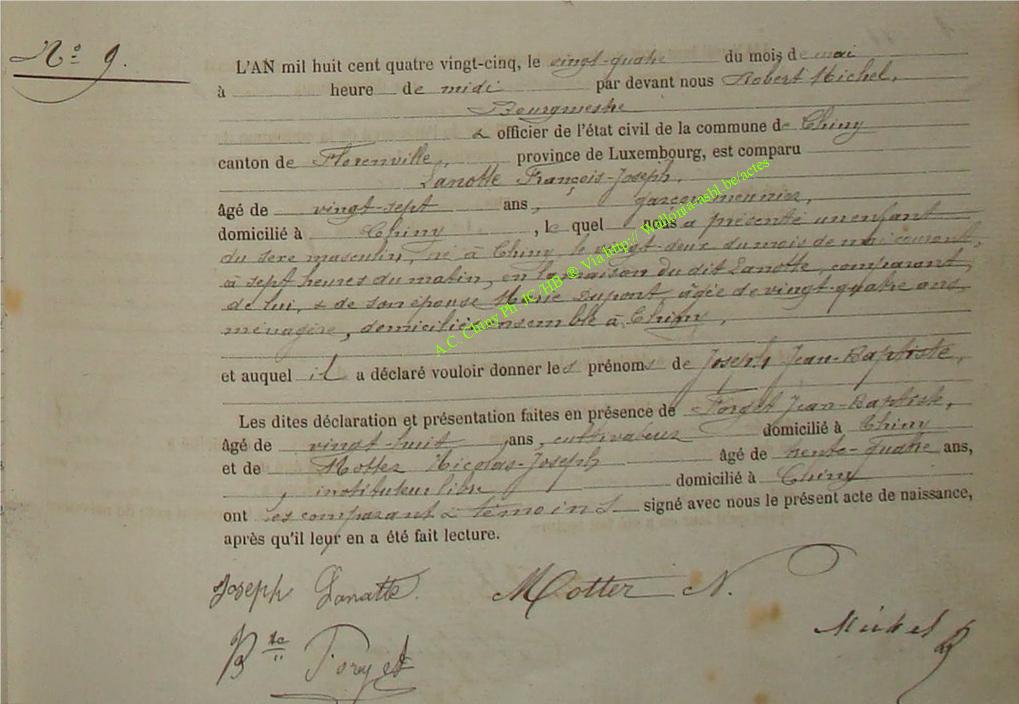 N° 9.
L'AN mil huit cent quatre vingt-cinq, le vingt-quatre du mois de mai
à heure de midi par devant nous Robert Michel,
Bourgmestre
& officier de l'état civil de la commune de Chiny
canton de Florenville, province de Luxembourg, est comparu
Lanotte François-Joseph,
âgé de vingt-sept ans, garçon meunier,
domicilié à Chiny, le quel nous a présenté un enfant
du sexe masculin, né à Chiny, le vingt-deux du mois de mai courant,
à sept heures du matin, en la maison du dit Lanotte, comparant,
de lui, & de son épouse Marie Dupont âgée de vingt-quatre ans
ménagère, domiciliés ensemble à Chiny,
et auquel il a déclaré vouloir donner les prénoms de Joseph Jean-Baptiste,
Les dites déclaration et présentation faites en présence de Forget Jean-Baptiste,
âgé de vingt-huit ans, cultivateur domicilié à Chiny
et de Motter Nicolas-Joseph âgé de trente-quatre ans,
, instituteur libre domicilié à Chiny
ont les comparant & témoins signé avec nous le présent acte de naissance,
après qu'il leur en a été fait lecture.
Joseph Lanotte. Motter N.
Michel R
Bte Forget
A.C. Chiny Ph. JC. HB. ® Via http:// Wallonia-asbl.be/actes